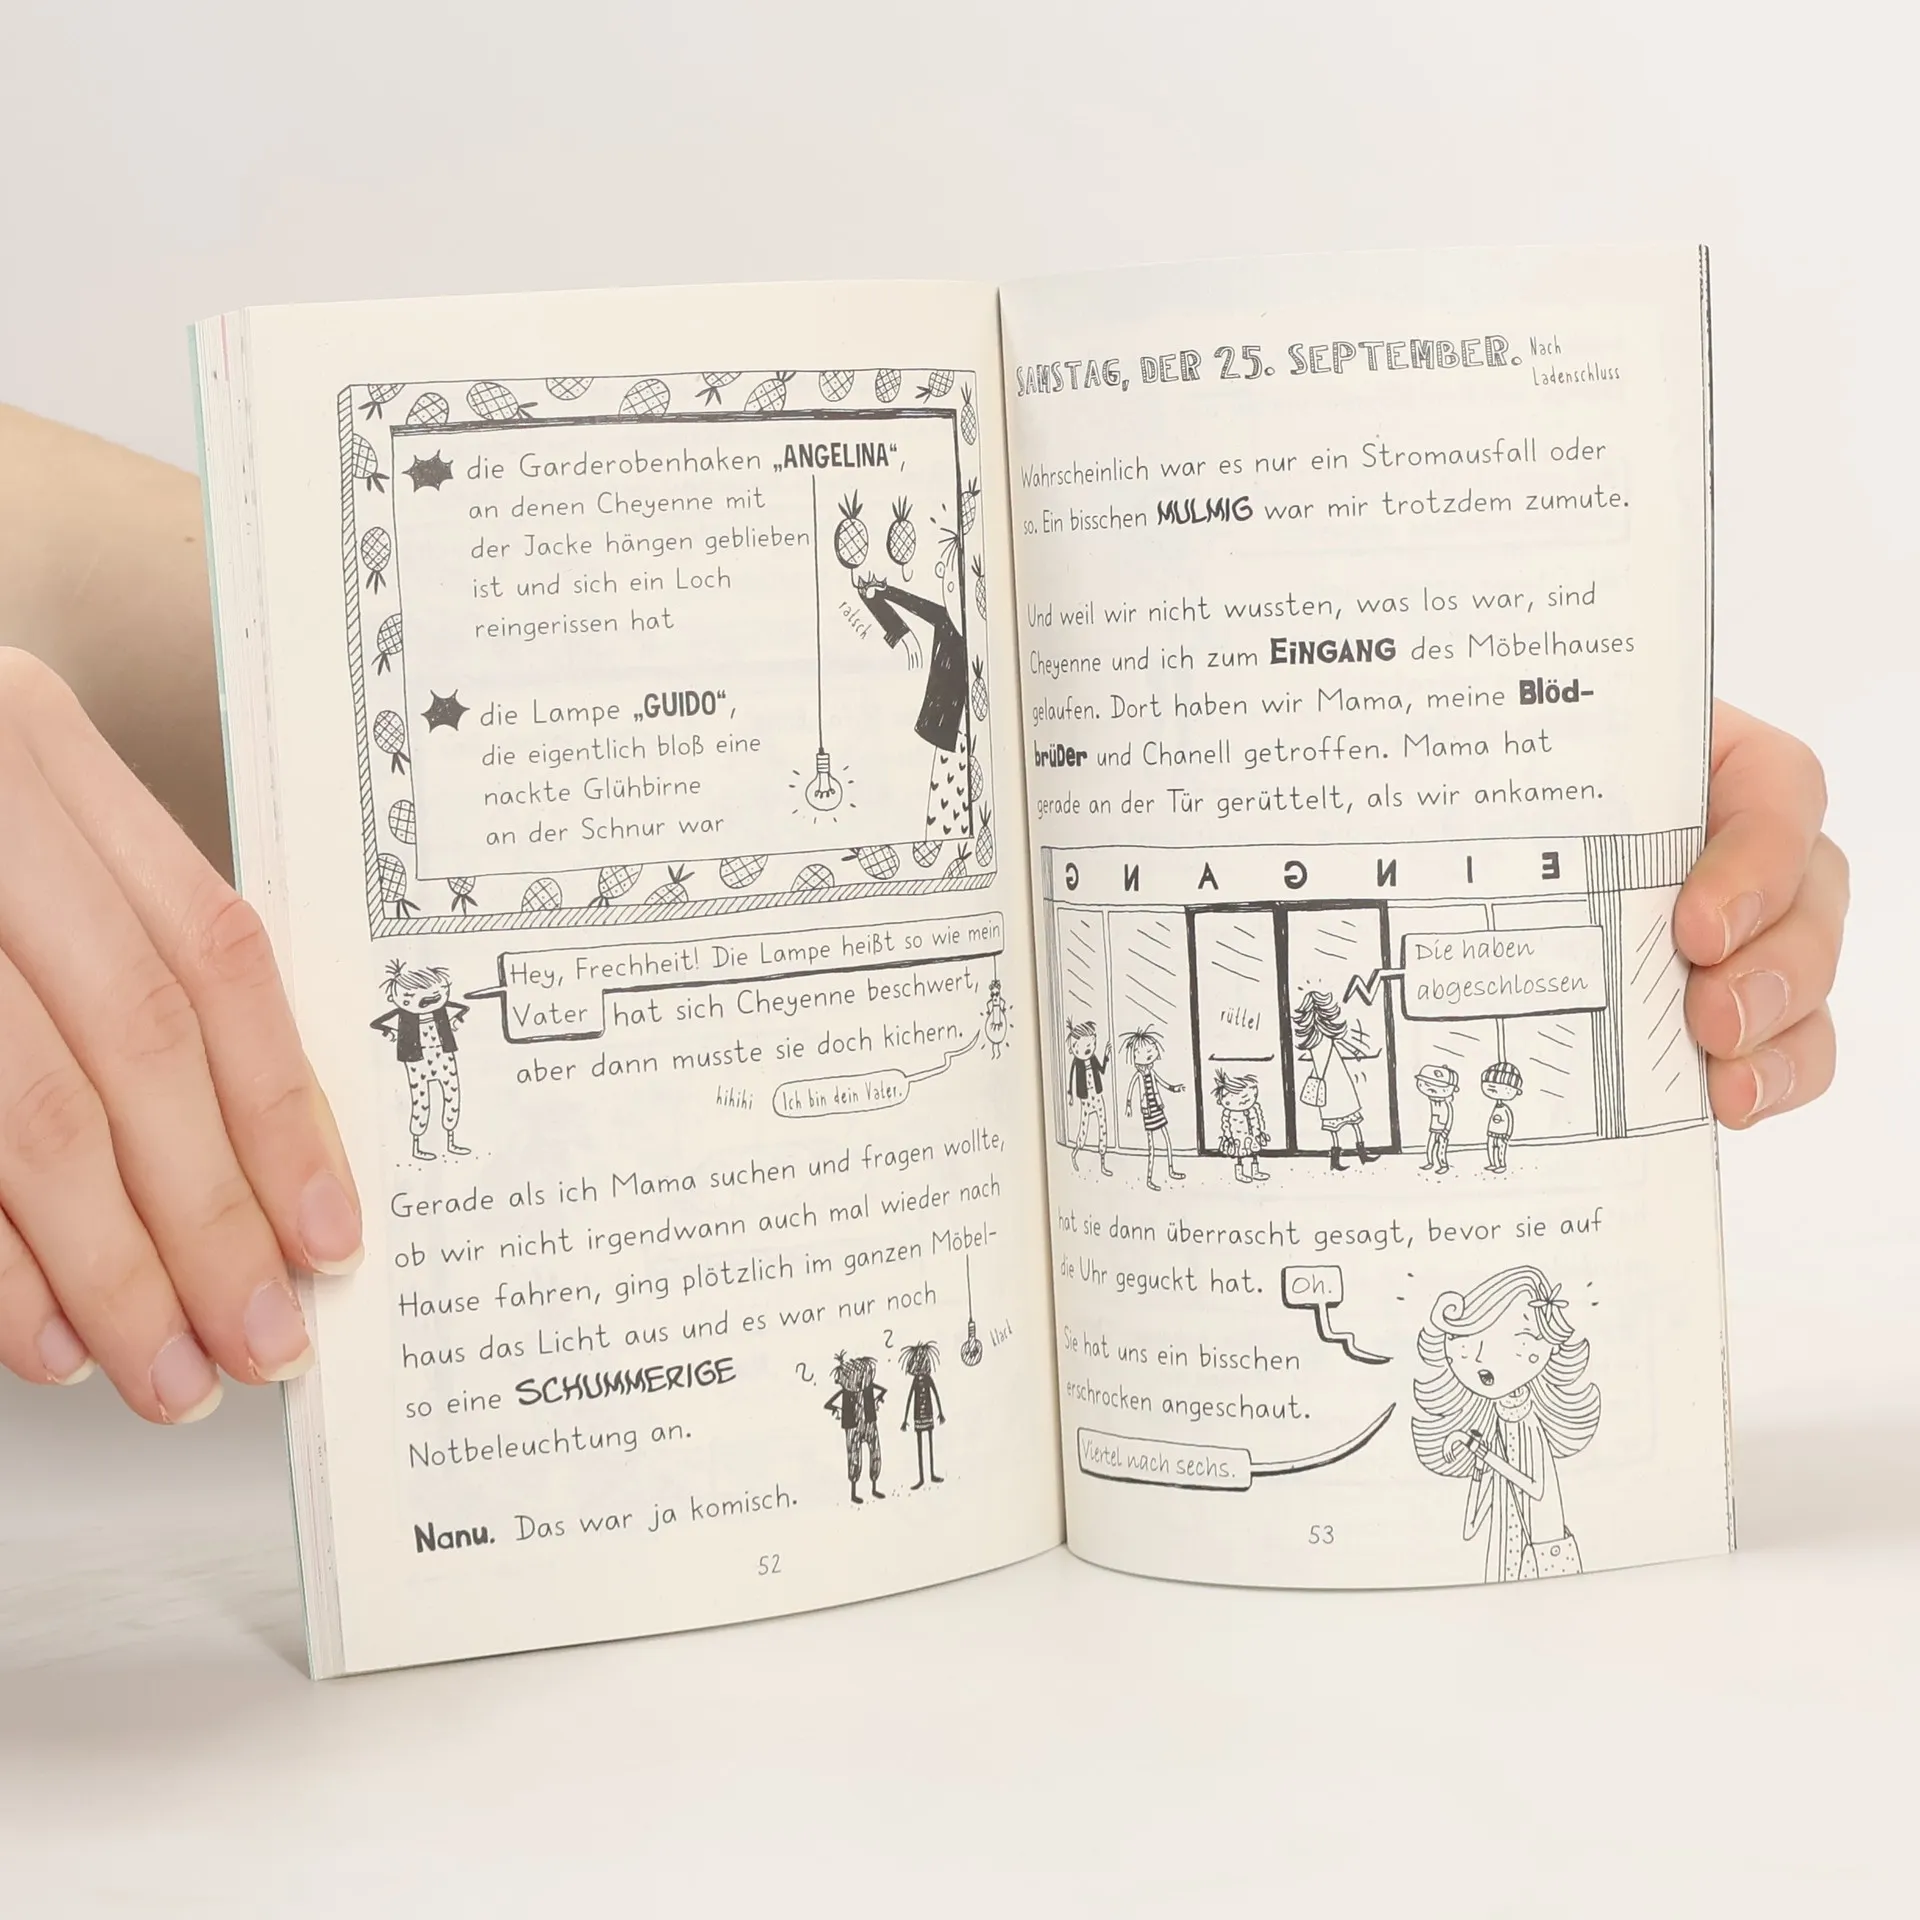 die Garderobenhaken „ANGELINA“,
an denen Cheyenne mit
der Jacke hängen geblieben
ist und sich ein Loch
reingerissen hat
ratsch
die Lampe „GUIDO“,
die eigentlich bloß eine
nackte Glühbirne
an der Schnur war
Hey, Frechheit! Die Lampe heißt so wie mein
Vater hat sich Cheyenne beschwert,
aber dann musste sie doch kichern.
hihihi
Ich bin dein Vater.
Gerade als ich Mama suchen und fragen wollte,
ob wir nicht irgendwann auch mal wieder nach
Hause fahren, ging plötzlich im ganzen Möbel-
haus das Licht aus und es war nur noch
so eine SCHUMMERIGE
? ?
klack
Notbeleuchtung an.
Nanu. Das war ja komisch.
52
SAMSTAG, DER 25. SEPTEMBER. Nach
Ladenschluss
Wahrscheinlich war es nur ein Stromausfall oder
so. Ein bisschen MULMIG war mir trotzdem zumute.
Und weil wir nicht wussten, was los war, sind
Cheyenne und ich zum EiNGANG des Möbelhauses
gelaufen. Dort haben wir Mama, meine Blöd-
brüDer und Chanell getroffen. Mama hat
gerade an der Tür gerüttelt, als wir ankamen.
EINGANG
rüttel
Die haben
abgeschlossen
hat sie dann überrascht gesagt, bevor sie auf
die Uhr geguckt hat. Oh.
Sie hat uns ein bisschen
erschrocken angeschaut.
Viertel nach sechs.
53